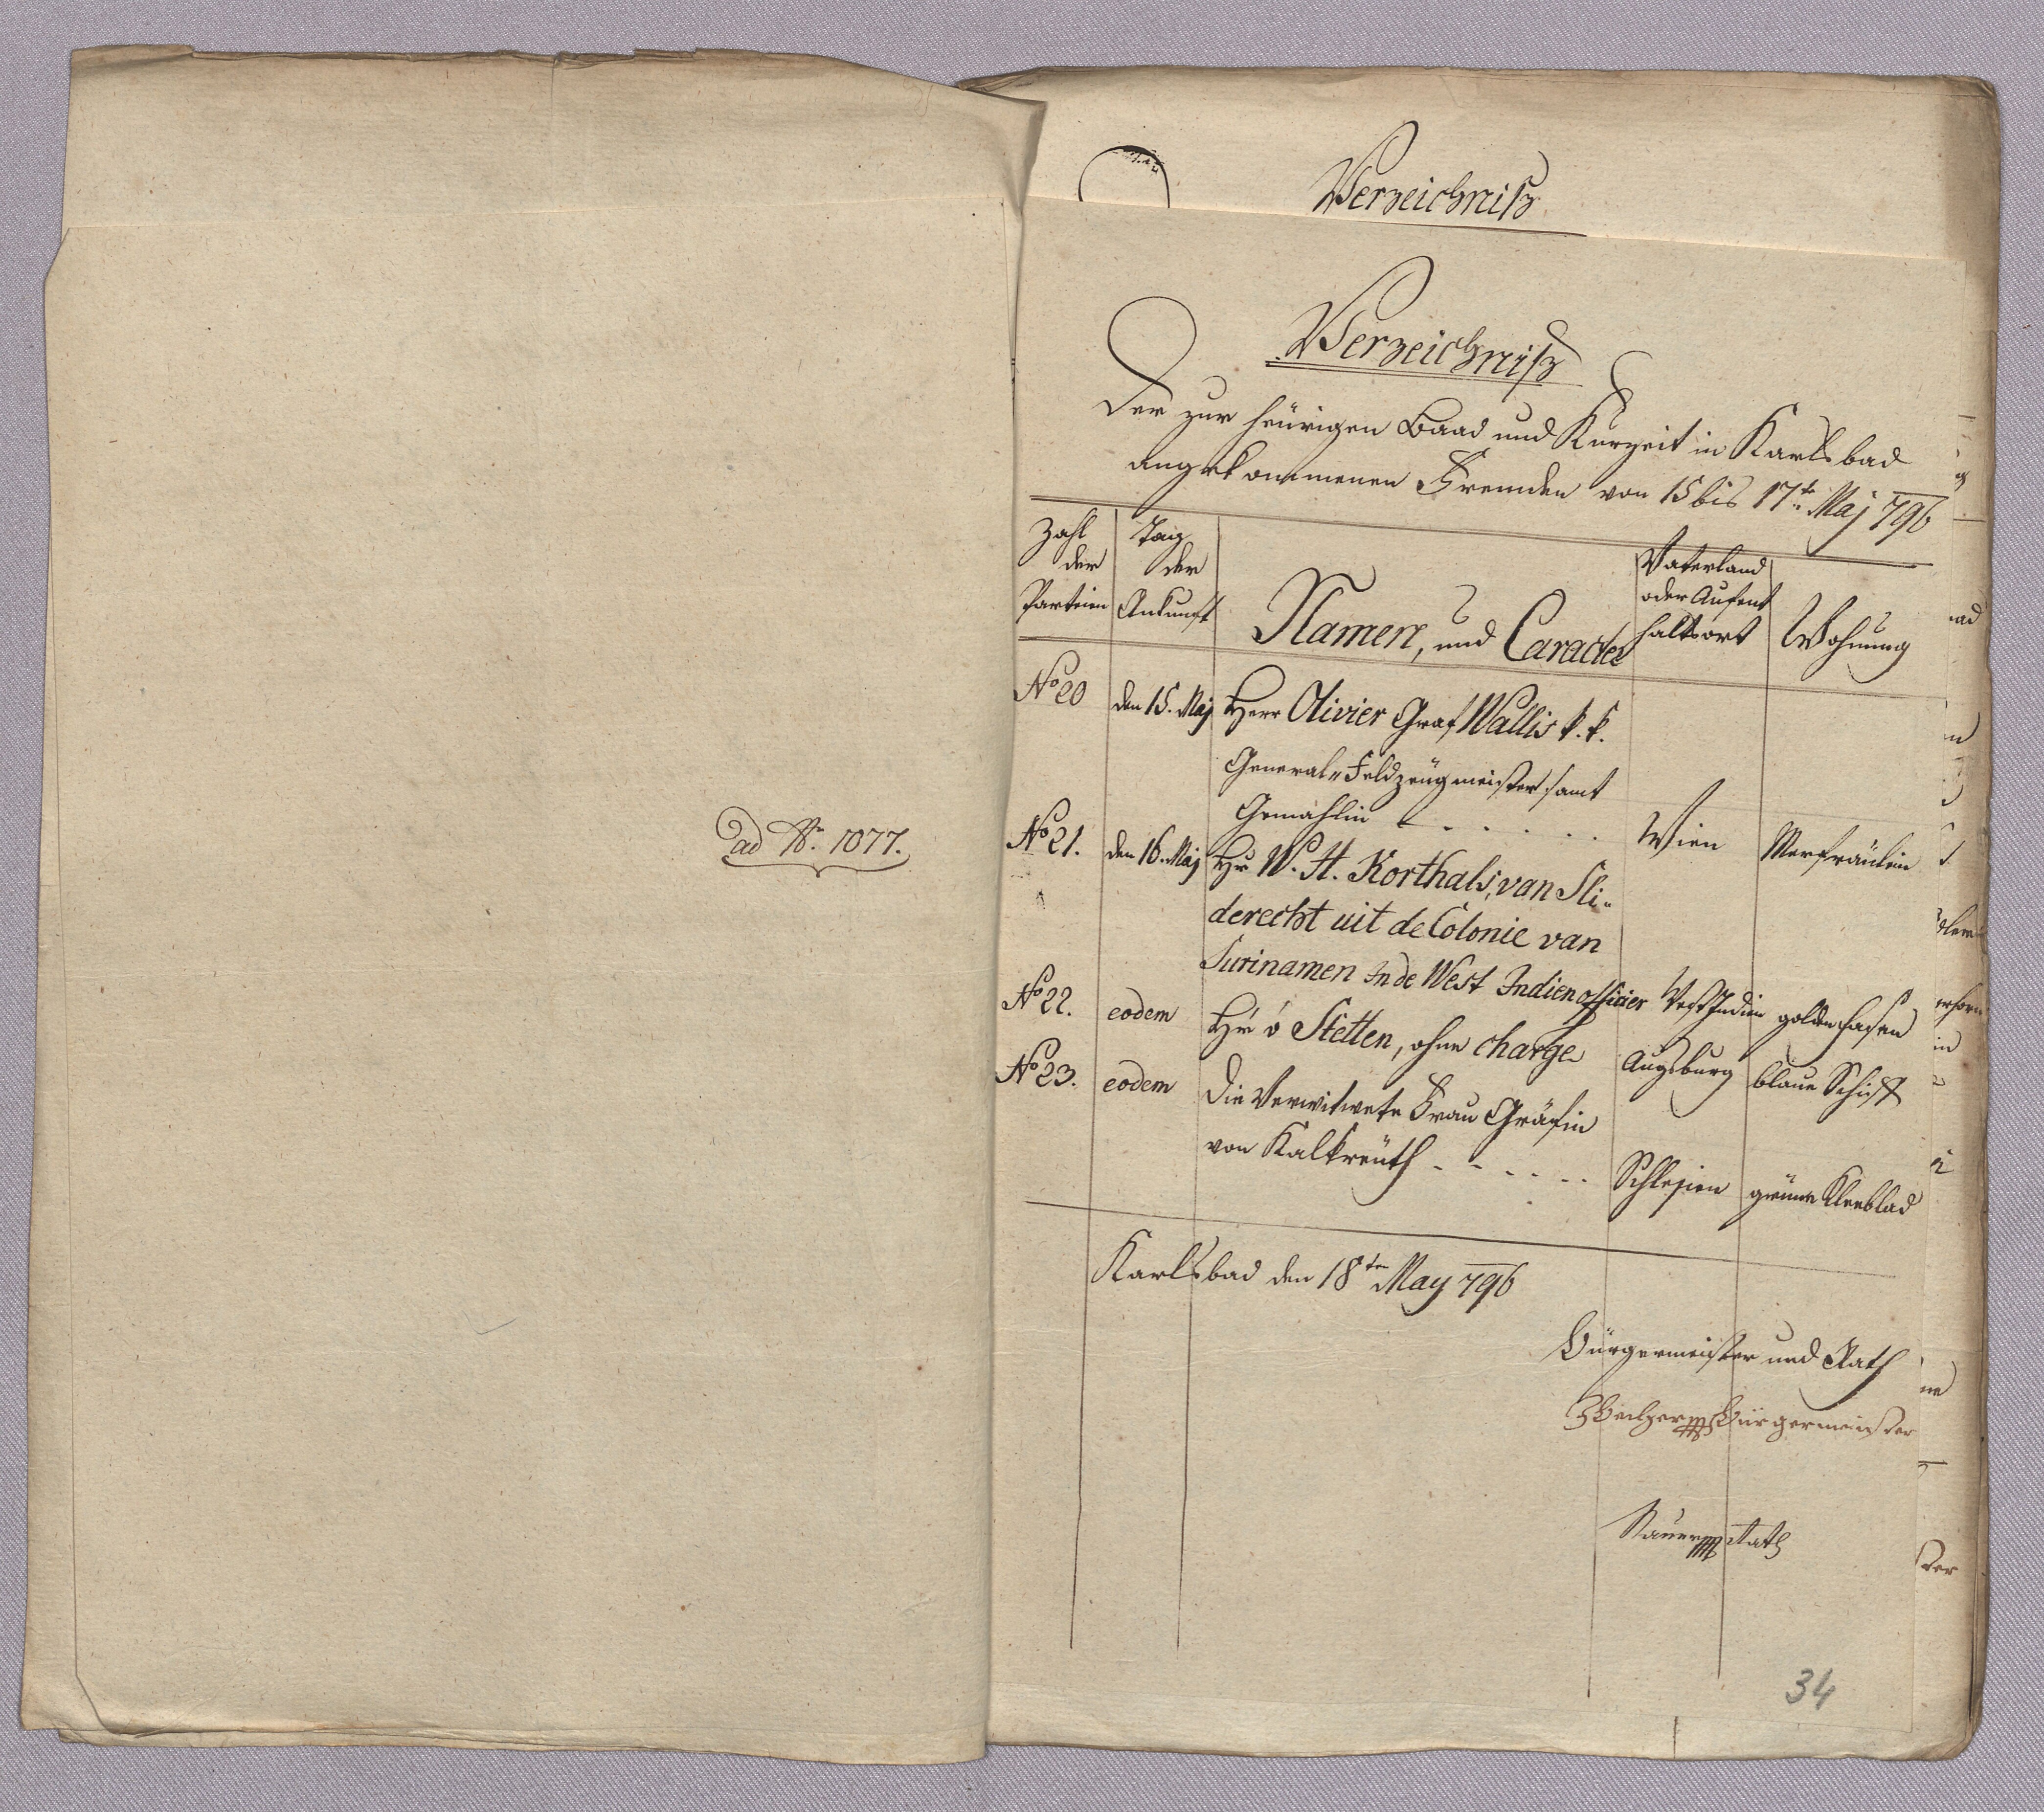 ad No. 1077.
Verzeichniß
Verzeichniß
der zur heürigen Baad und Kurzeit in Karlsbad
angekommenen Fremden von 15 bis 17te Maj 796
Zahl der Parteien
Tag der Ankunft
Namen, und Caracter
Vaterland oder Aufent haltsort
Wohnung
No 20 den 15. Maj Herr Olivier Graf Wallis k. k.
General-Feldzeügmeister samt
Gemahlin - - - - - Wien Merfräulein
No 21. den 16. Maj Hr W. H. Korthals, van Sli-
derecht uit de Colonie van
Surinamen In de West Indien officier West Indien golden Hasen
No 22. eodem Hr v Stetten, ohne charge Augsburg blaue Schiff
No 23. eodem Die Verwitwete Frau Gräfin
von Kalkreüth - - - - - Schlesien grüne Kleeblad
Karlsbad den 18te May 796
Bürgermeister und Rath
Bürgermeister
Rath
34